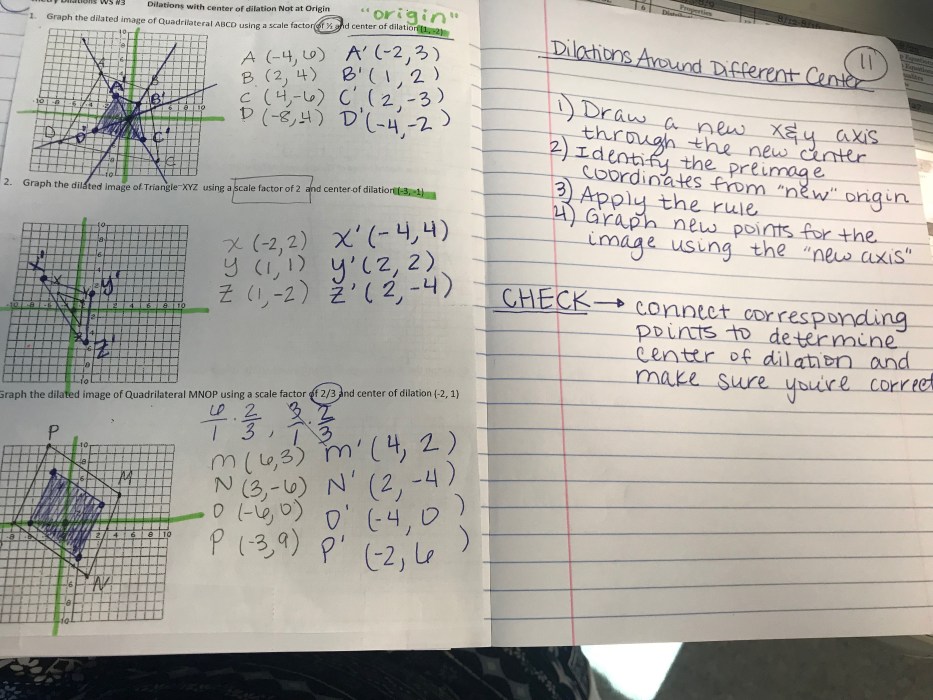 Dilations WS #3 Dilations with center of dilation Not at Origin
"origin"
1. Graph the dilated image of Quadrilateral ABCD using a scale factor of ½ and center of dilation (1, -2)
A (-4, 6) A' (-2, 3)
B (2, 4) B' (1, 2)
C (4, -6) C' (2, -3)
D (-8, 4) D' (-4, -2)
2. Graph the dilated image of Triangle XYZ using a scale factor of 2 and center of dilation (-3, -1)
X (-2, 2) X' (-4, 4)
Y (1, 1) Y' (2, 2)
Z (1, -2) Z' (2, -4)
Graph the dilated image of Quadrilateral MNOP using a scale factor of 2/3 and center of dilation (-2, 1)
6/1 · 2/3, 3/1 · 2/3
M (6, 3) M' (4, 2)
N (3, -6) N' (2, -4)
O (-6, 0) O' (-4, 0)
P (-3, 9) P' (-2, 6)
11
Dilations Around Different Center
1) Draw a new x&y axis
through the new center
2) Identify the preimage
coordinates from "new" origin
3) Apply the rule
4) Graph new points for the
image using the "new axis"
CHECK → connect corresponding
points to determine
center of dilation and
make sure you're correct